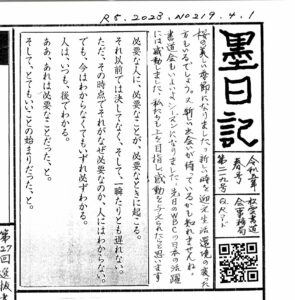 R5. 2023. NO219. 4. 1
墨日記
春号
書道会事務局
QRコード
桜の美しい季節になりました。新しい時を迎え生活環境の変った
方もいるでしょう。又新しい出会いが待っているかもしれませんね。
書道会もいよいよシーズンになりました。先日のWBCの日本の活躍
には感動しました。私たちも上を目指し感動を与えられたらと思います
必要な人に、必要なことが、必要なときに起こる。
それ以前では決してなく、そして、一瞬たりとも遅れない。
ただ、その時点でそれがなぜ必要なのか、人にはわからない。
でも、今はわからなくてもいずれ必ずわかる。
人は、いつも、後でわかる。
ああ、あれは必要なことだった、と。
そして、とてもいいことの始まりだった、と。
第27回選抜